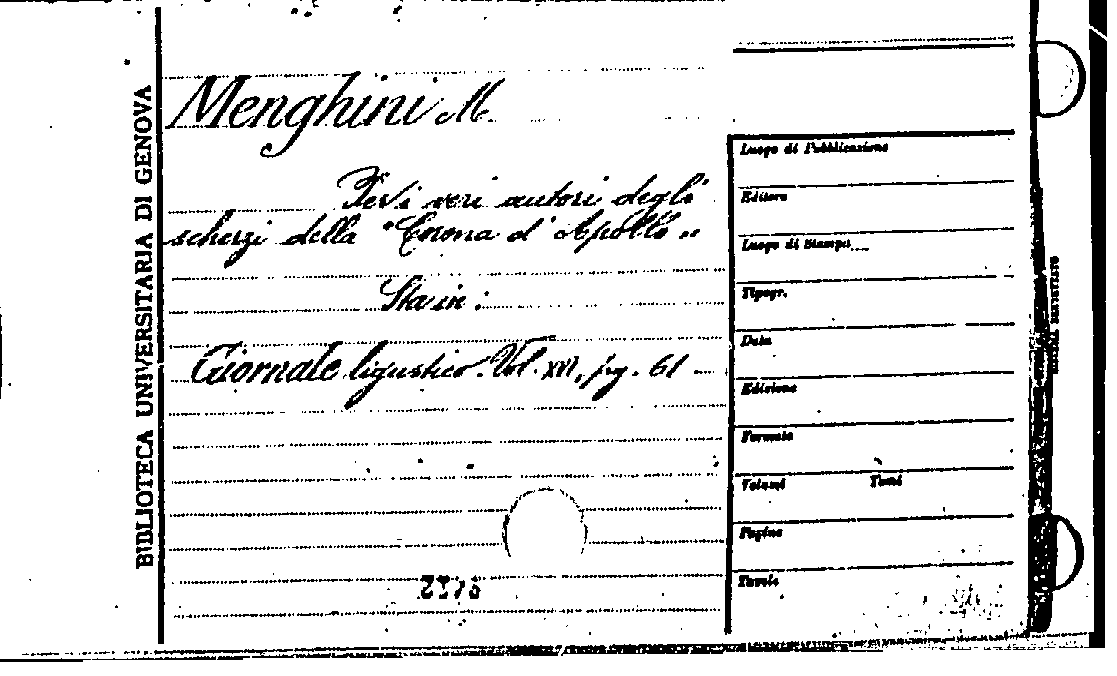 BIBLIOTECA UNIVERSITARIA DI GENOVA
Menghini M.
veri autori degli
scherzi della "Corona d'Apollo"
Sta in:
Giornale ligustico. Vol. XVI, pg. 61
Luogo di Pubblicazione
Editore
Luogo di Stampa
Tipogr.
Data
Edizione
Formato
Volumi Tomi
Pagine
Tavole